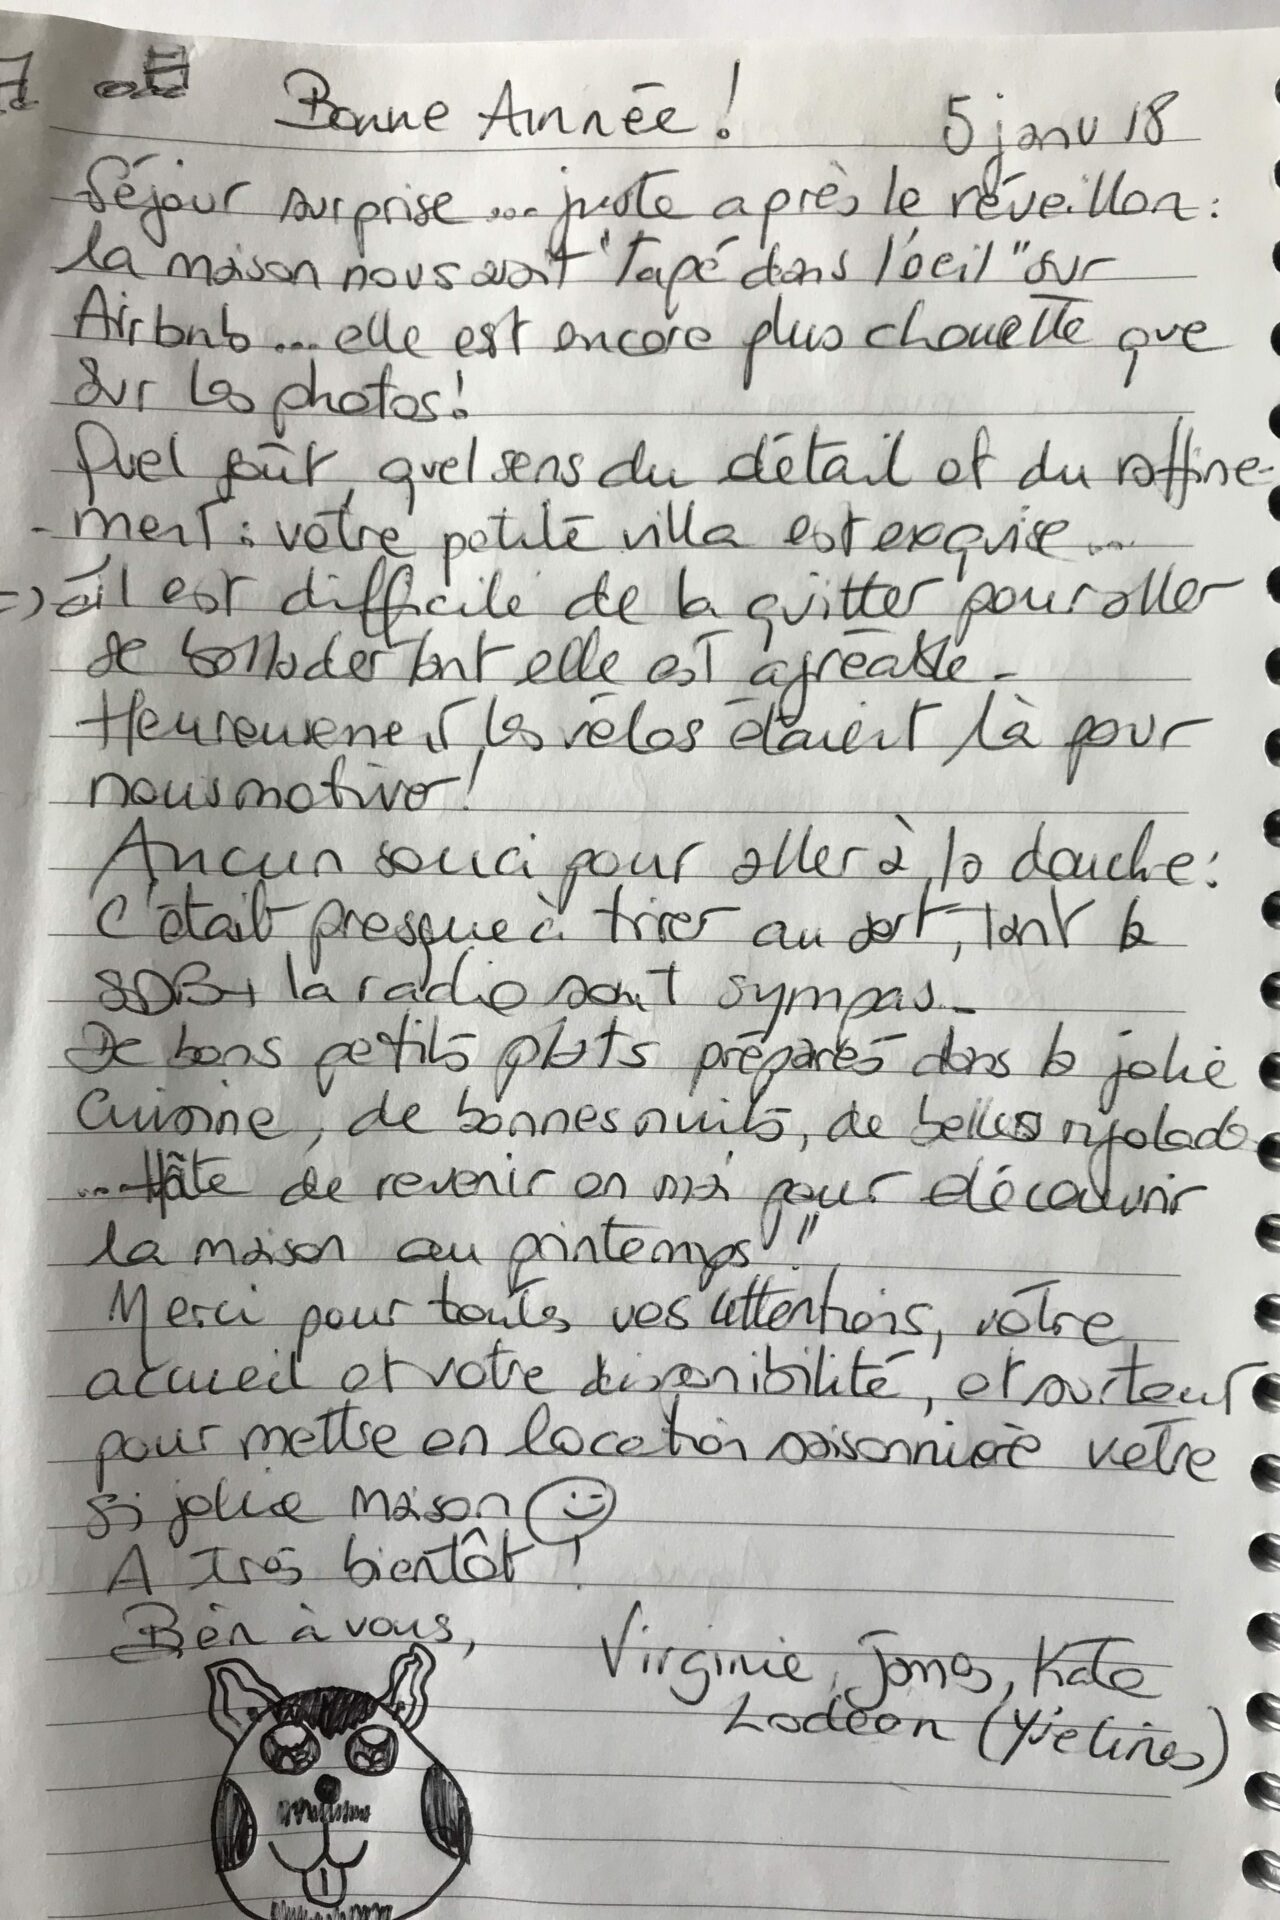 Bonne Année !
5 janv 18
Séjour surprise... juste après le réveillon :
la maison nous avait "tapé dans l'oeil" sur
Airbnb... elle est encore plus chouette que
sur les photos !
Quel goût, quel sens du détail et du raffine-
-ment : votre petite villa est exquise...
=> il est difficile de la quitter pour aller
se ballader tant elle est agréable.
Heureusement les vélos étaient là pour
nous motiver !
Aucun souci pour aller à la douche :
C'était presque à tirer au sort, tant la
SDB + la radio sont sympas.
De bons petits plats préparés dans la jolie
cuisine, de bonnes nuits, de belles
... Hâte de revenir en mai pour découvrir
la maison au printemps !!
Merci pour toutes vos attentions, votre
accueil et votre disponibilité, et surtout
pour mettre en location saisonnière votre
si jolie maison
A très bientôt !
Bèn à vous,
Virginie, James, Kate
(Yvelines)